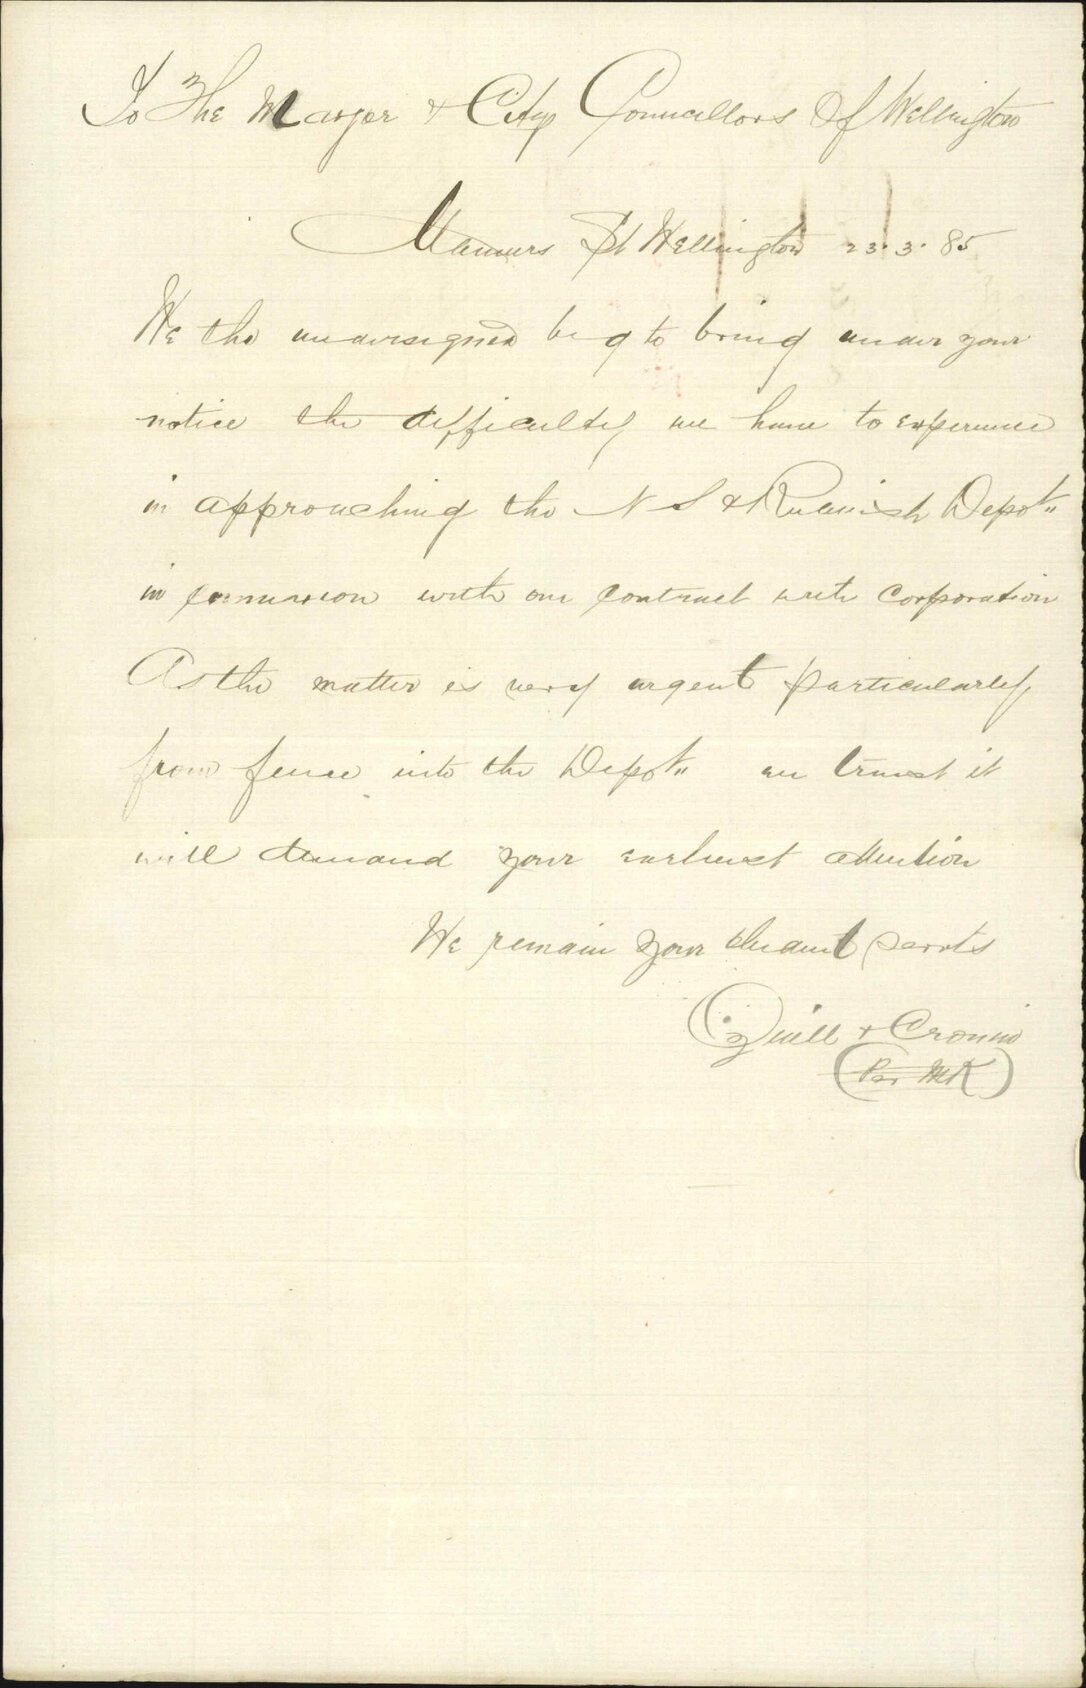 To The Mayor & City Councillors Of Wellington
Manners St Wellington 23.3.85
We the undersigned beg to bring under your
notice the difficulty we have to experience
in approaching the N S & Rubbish Depot"
in connexion with our contract with corporation
As the matter is very urgent particularly
from fence into the Depot" we trust it
will demand your earliest attention
We remain your obedient servts
Quill & Cronin
(Per MK)